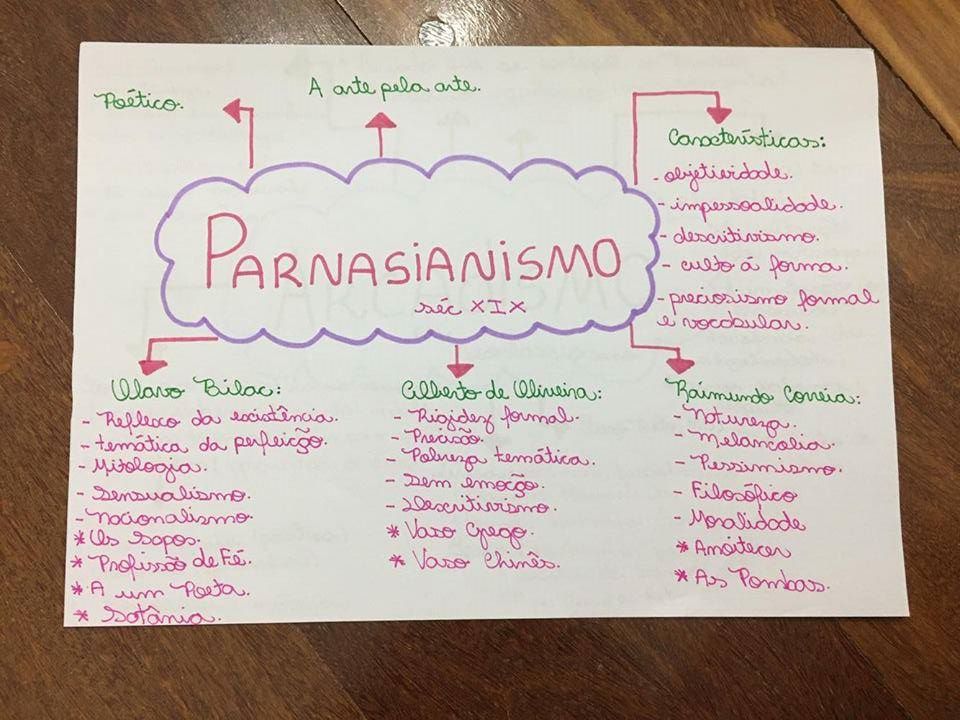 Poético.
A arte pela arte.
PARNASIANISMO
séc XIX
Características:
- objetividade.
- impessoalidade.
- descritivismo.
- culto á forma.
- preciosismo formal
e vocabular.
Olavo Bilac:
- Reflexo da existência.
- temática da perfeição.
- Mitologia.
- Sensualismo.
- Nacionalismo.
* Os Sapos.
* Profissão de Fé.
* A um Poeta.
* Satânia.
Alberto de Oliveira:
- Rigidez formal.
- Precisão.
- Pobreza temática.
- Sem emoção.
- Descritivismo.
* Vaso Grego.
* Vaso Chinês.
Raimundo Correia:
- Natureza.
- Melancolia.
- Pessimismo.
- Filosófico
- Moralidade
* Anoitecer
* As Pombas.